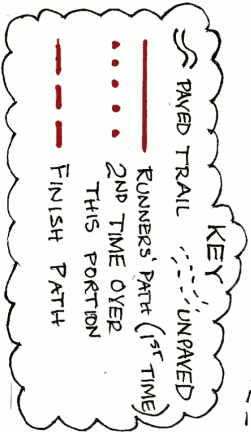 KEY
PAVED TRAIL
UNPAVED
RUNNERS' PATH (1ST TIME)
2ND TIME OVER
THIS PORTION
FINISH PATH